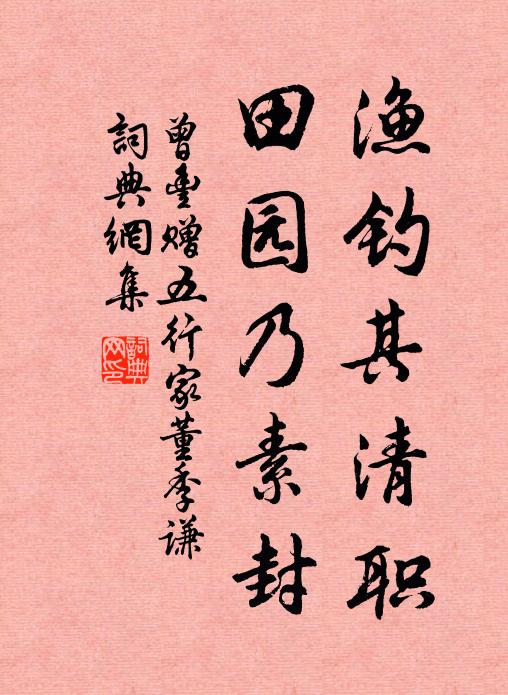 渔钓其清职
田园乃素封
曾豊赠五行家董季谦
詞典網集
詞典网印